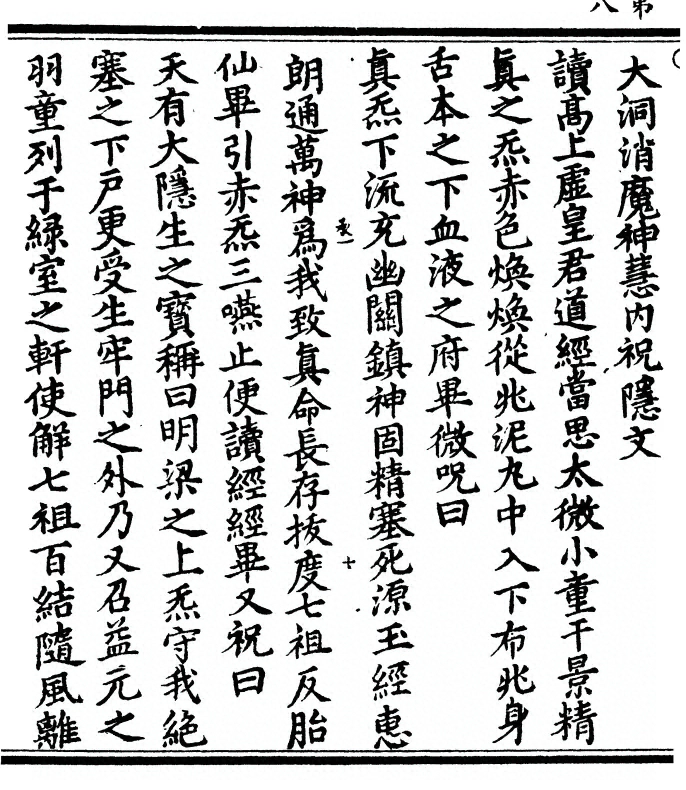 第八
大洞消魔神慧内祝隱文
讀髙上虛皇君道經當思太微小童干景精
眞之炁赤色煥煥從兆泥丸中入下布兆身
舌本之下血液之府畢微呪曰
眞炁下流充幽關鎮神固精塞死源玉經惠
朗通萬神爲我致眞命長存拔度七祖反胎
仙畢引赤炁三嚥止便讀經經畢又祝曰
天有大隱生之寳稱曰明梁之上炁守我絶
塞之下戸更受生牢門之外乃又召益元之
羽童列于緑室之軒使解七祖百結隨風離
十